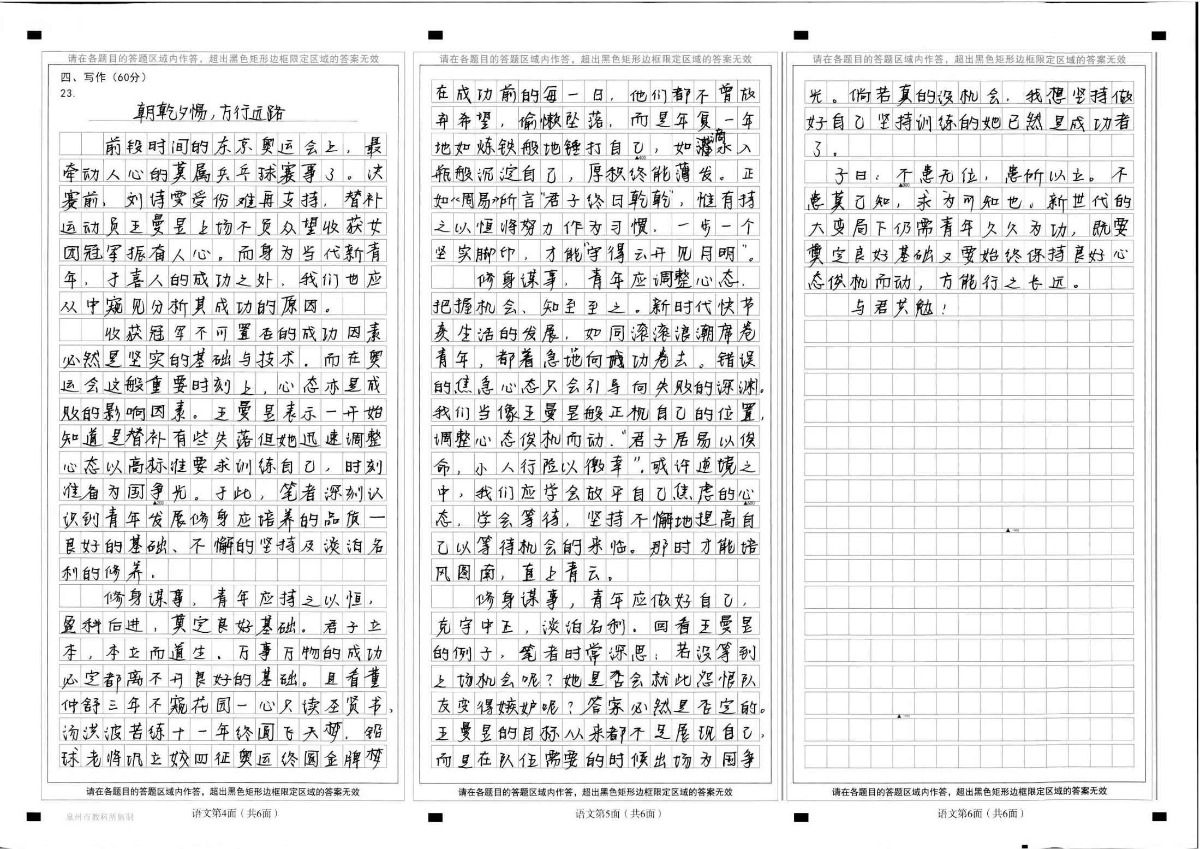 请在各题目的答题区域内作答，超出黑色矩形边框限定区域的答案无效
四、写作（60分）
23.
朝乾夕惕，方行远路
前段时间的东京奥运会上，最
牵动人心的莫属乒乓球赛事了。决
赛前，刘诗雯受伤难再支持，替补
运动员王曼昱上场不负众望收获女
团冠军振奋人心。而身为当代新青
年，于喜人的成功之外，我们也应
从中窥见分析其成功的原因。
收获冠军不可置否的成功因素
必然是坚实的基础与技术。而在奥
运会这般重要时刻上，心态亦是成
败的影响因素。王曼昱表示一开始
知道是替补有些失落但她迅速调整
心态以高标准要求训练自己，时刻
准备为国争光。于此，笔者深刻认
识到青年发展修身应培养的品质一
良好的基础、不懈的坚持及淡泊名
利的修养。
修身谋事，青年应持之以恒，
盈科后进，奠定良好基础。君子立
本，本立而道生。万事万物的成功
必定都离不开良好的基础。且看董
仲舒三年不窥花园一心只读圣贤书，
汤洪波苦练十一年终圆飞天梦，铅
球老将巩立姣四征奥运终圆金牌梦
请在各题目的答题区域内作答，超出黑色矩形边框限定区域的答案无效
泉州市教科所监制
语文第4面（共6面）
请在各题目的答题区域内作答，超出黑色矩形边框限定区域的答案无效
在成功前的每一日，他们都不曾放
弃希望，偷懒坠落，而是年复一年
地如炼铁般地锤打自己，如滴水入
瓶般沉淀自己，厚积终能薄发。正
如《周易》所言"君子终日乾乾"，惟有持
之以恒将努力作为习惯，一步一个
坚实脚印，才能"守得云开见月明"。
修身谋事，青年应调整心态，
把握机会、知至至之。新时代快节
奏生活的发展，如同滚滚浪潮席卷
青年，都着急地向成功卷去。错误
的焦急心态只会引导向失败的深渊。
我们当像王曼昱般正视自己的位置，
调整心态俟机而动。"君子居易以俟
命，小人行险以徼幸"，或许逆境之
中，我们应学会放平自己焦虑的心
态，学会等待，坚持不懈地提高自
己以等待机会的来临。那时才能培
风图南，直上青云。
修身谋事，青年应做好自己，
克守中正，淡泊名利。回看王曼昱
的例子，笔者时常深思：若没等到
上场机会呢？她是否会就此怨恨队
友变得嫉妒呢？答案必然是否定的。
王曼昱的目标从来都不是展现自己，
而是在队伍需要的时候出场为国争
请在各题目的答题区域内作答，超出黑色矩形边框限定区域的答案无效
语文第5面（共6面）
请在各题目的答题区域内作答，超出黑色矩形边框限定区域的答案无效
光。倘若真的没机会，我想坚持做
好自己坚持训练的她已然是成功者
了。
子曰：不患无位，患所以立。不
患莫己知，求为可知也。新世代的
大变局下仍需青年久久为功，既要
奠定良好基础又要始终保持良好心
态俟机而动，方能行之长远。
与君共勉！
请在各题目的答题区域内作答，超出黑色矩形边框限定区域的答案无效
语文第6面（共6面）